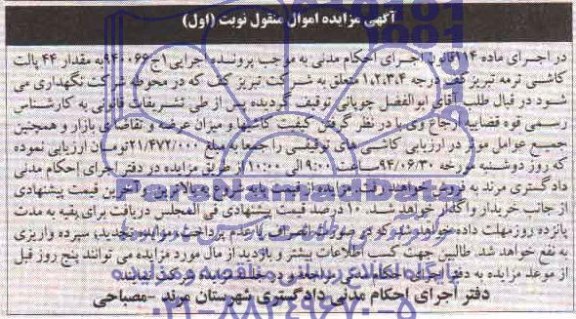 آگهی مزایده اموال منقول نوبت (اول)
در اجرای ماده ۱۱۴ قانون اجرای احکام مدنی به موجب پرونده اجرایی ۹۴۰۰۶۶ به مقدار ۴۴ پالت
کاشی ترمه تبریز کف درجه ۱،۲،۳،۴ متعلق به شرکت تبریز کف که در محوطه شرکت نگهداری می
شود در قبال طلب آقای ابوالفضل چوپانی توقیف گردیده پس از طی تشریفات قانونی به کارشناس
رسمی قوه قضاییه ارجاع وی با در نظر گرفتن کیفیت کاشیها و میزان عرضه و تقاضای بازار و همچنین
جمیع عوامل موثر در ارزیابی کاشی های توقیفی را جمعا به مبلغ ۲۱/۴۷۲/۰۰۰ تومان ارزیابی نموده
که روز دوشنبه مورخه ۹۴/۰۶/۳۰ ساعت ۹:۰۰ الی ۱۰:۰۰ از طریق مزایده در دفتر اجرای احکام مدنی
دادگستری مرند به فروش خواهد رفت مزایده از قیمت پایه شروع به بالاترین و آخرین قیمت پیشنهادی
از جانب خریدار واگذار خواهد شد. ۱۰ درصد قیمت پیشنهادی فی المجلس دریافت برای بقیه به مدت
پانزده روز مهلت داده خواهد شد که در صورت انصراف یا عدم پرداخت مزایده تجدید، سپرده واریزی
به نفع خواهد شد. طالبین جهت کسب اطلاعات بیشتر و بازدید از مال مورد مزایده می توانند پنج روز قبل
از موعد مزایده به دفتر اجرای احکام مدنی مراجعه و در جلسه مزایده شرکت نمایند
دفتر اجرای احکام مدنی دادگستری شهرستان مرند - مصباحی
ParsNamadData
۰۲۱-۸۸۳۴۹۶۷۰-۵